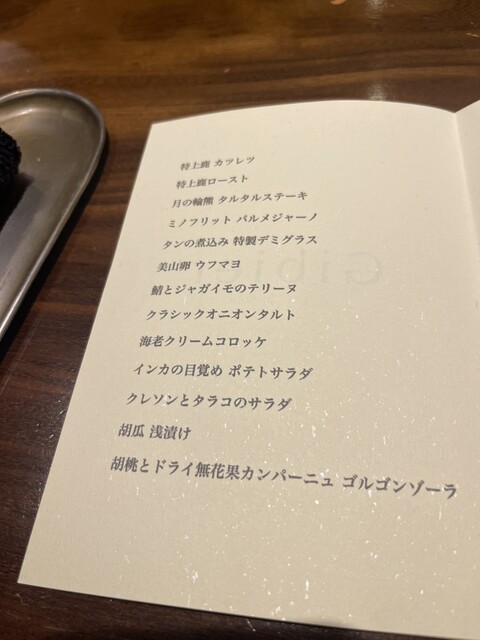 特上鹿 カツレツ
特上鹿ロースト
月の輪熊 タルタルステーキ
ミノフリット パルメジャーノ
タンの煮込み 特製デミグラス
美山卵 ウフマヨ
鯖とジャガイモのテリーヌ
クラシックオニオンタルト
海老クリームコロッケ
インカの目覚め ポテトサラダ
クレソンとタラコのサラダ
胡瓜 浅漬け
胡桃とドライ無花果カンパーニュ ゴルゴンゾーラ